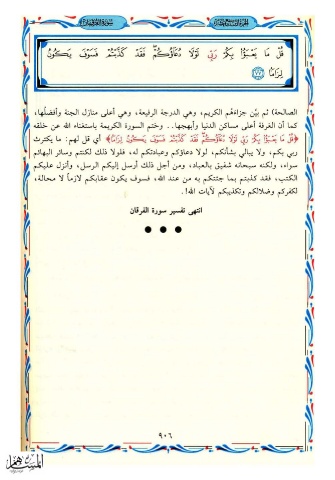 سورة الفرقان
الجزء التاسع عشر
قُلْ مَا يَعْبَؤُا بِكُمْ رَبِّى لَوْلَا دُعَآؤُكُمْ فَقَدْ كَذَّبْتُمْ فَسَوْفَ يَكُونُ
لِزَامًا ﴿٧٧﴾
الصالحة) ثم بيّن جزاءَهم الكريم، وهي الدرجة الرفيعة، وهي أعلى منازل الجنة وأفضلُها،
كما أن الغرفة أعلى مساكن الدنيا وأبهجها. . وختم السورة الكريمة باستغناء الله عن خلقه
﴿قُلْ مَا يَعْبَؤُا بِكُمْ رَبِّى لَوْلَا دُعَآؤُكُمْ فَقَدْ كَذَّبْتُمْ فَسَوْفَ يَكُونُ لِزَامًا﴾ أي قل لهم: ما يكترث
ربي بكم، ولا يبالي بشأنكم، لولا دعاؤكم وعبادتكم له، فلولا ذلك لكنتم وسائر البهائم
سواء، ولكنه سبحانه شفيق بالعباد، ومن أجل ذلك أرسل إليكم الرسل، وأنزل عليكم
الكتب، فقد كذبتم بما جئتكم به من عند الله، فسوف يكون عقابكم لازماً لا محالة،
لكفركم وضلالكم وتكذيبكم لآيات الله!.
انتهى تفسير سورة الفرقان
٩٠٦